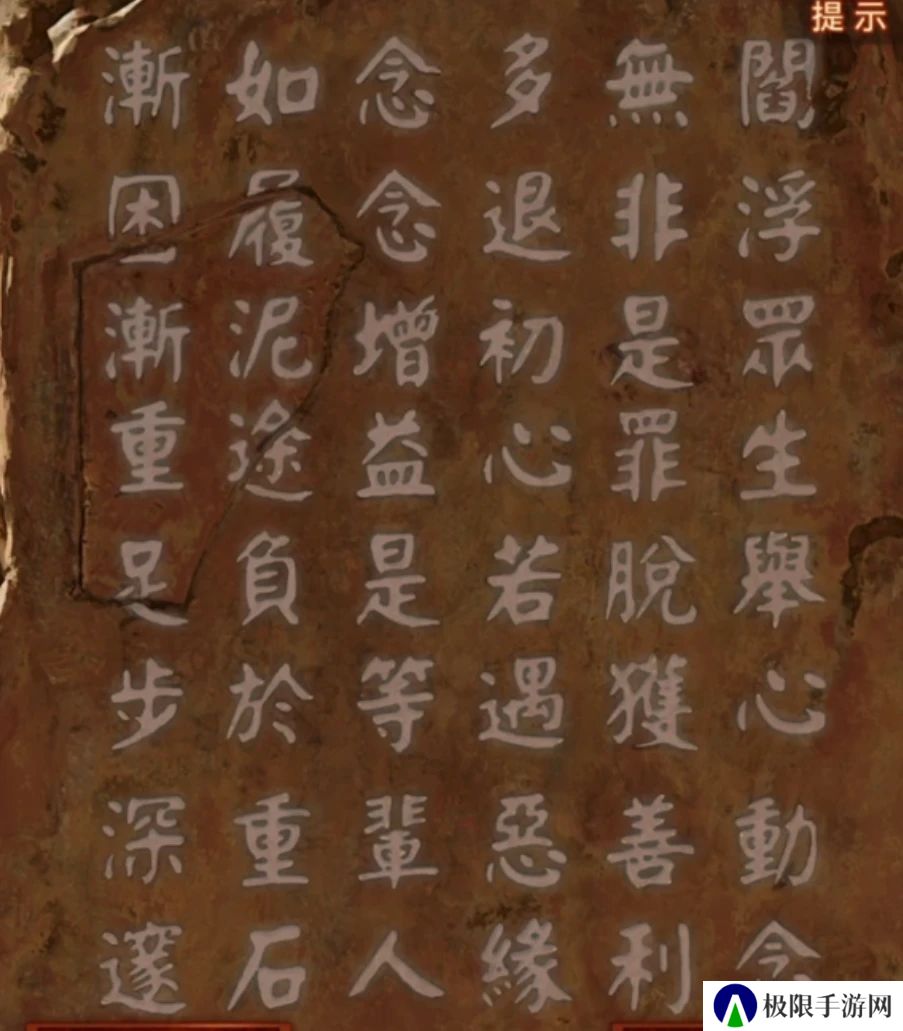 提示
閻浮眾生舉心動念
無非是罪脫獲善利
多退初心若遇惡緣
念念增益是等輩人
如履泥途負於重石
漸困漸重足步深邃
极限手游网